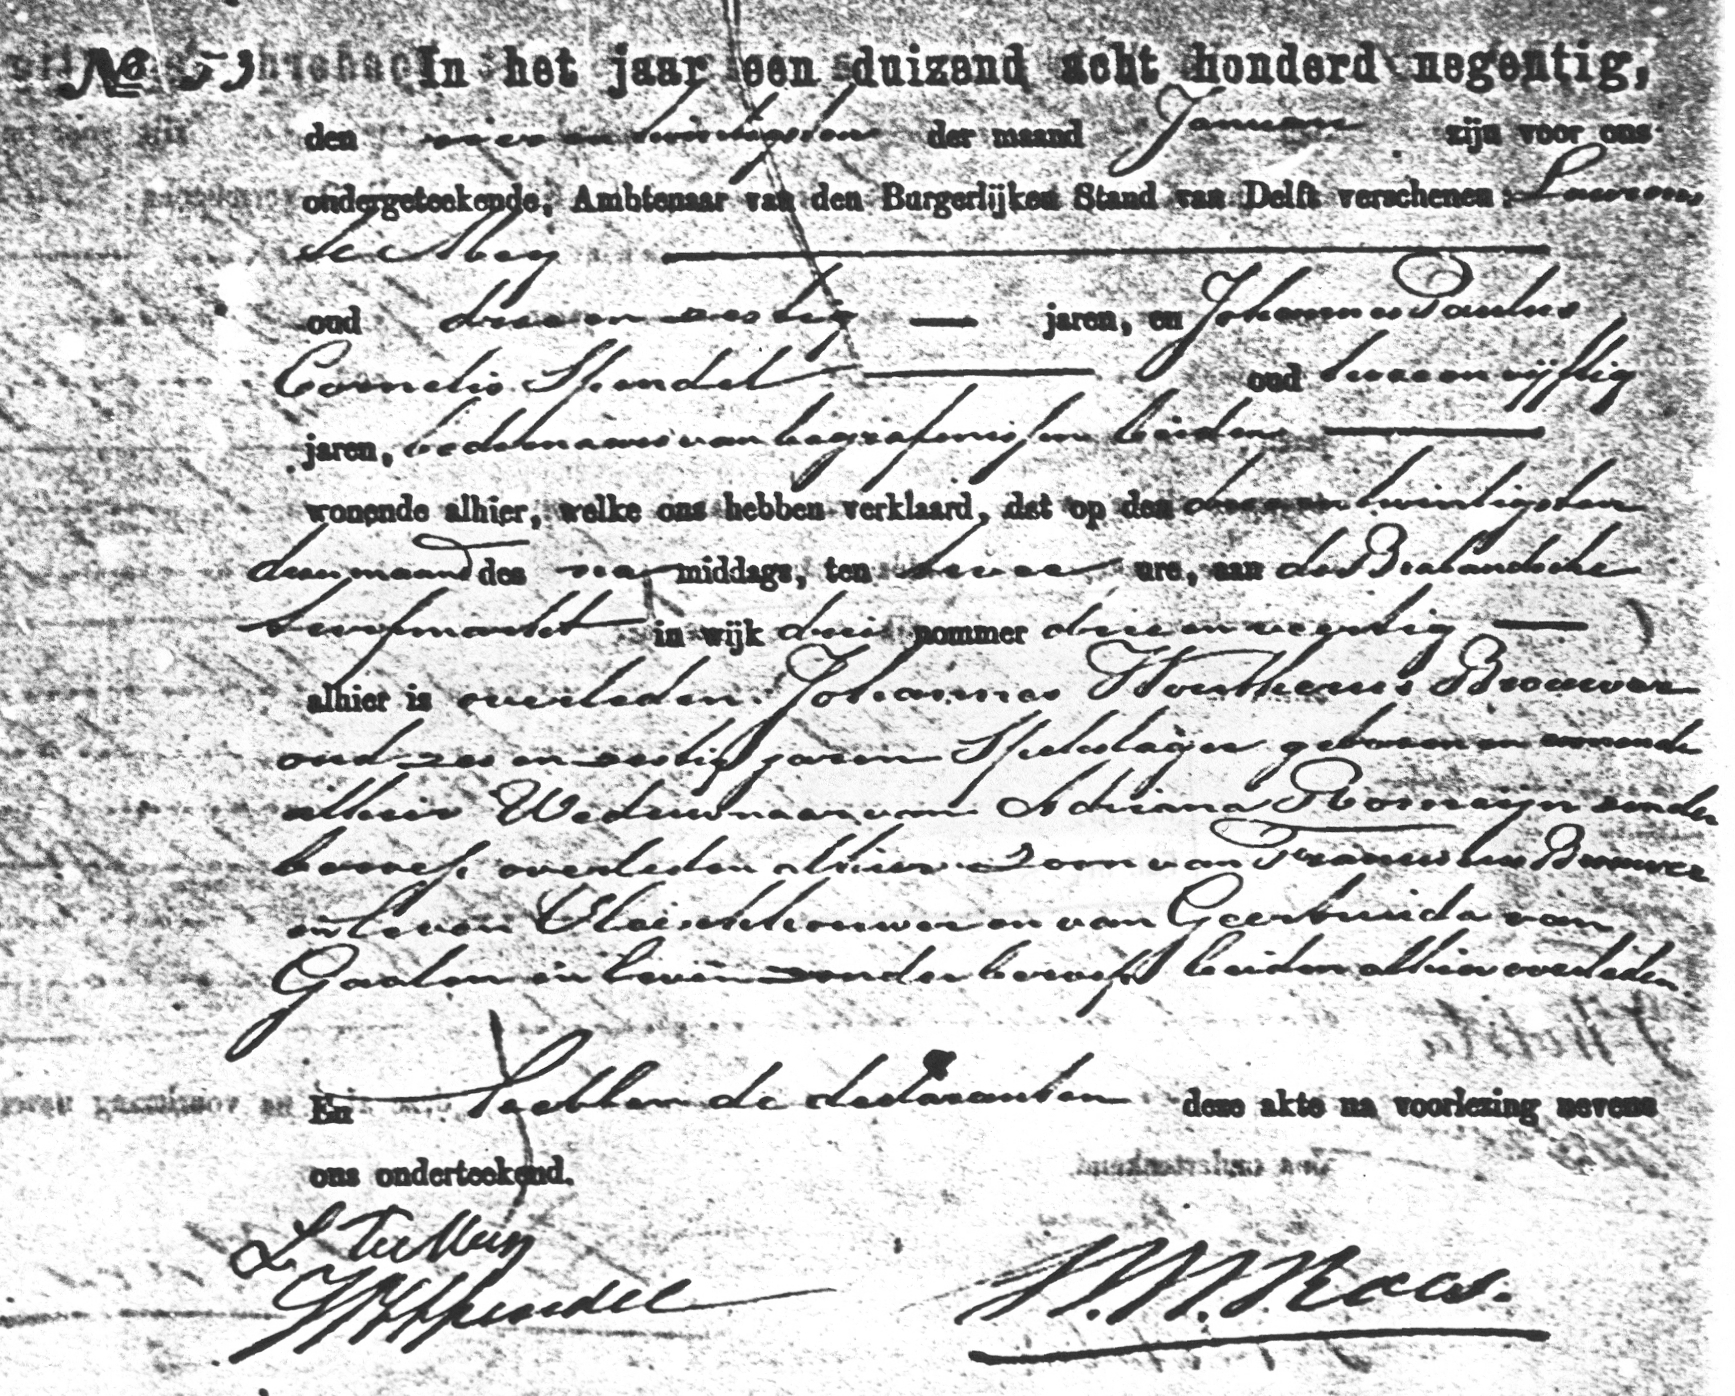 No 53 In het jaar een duizend acht honderd negentig,
den vier en twintigsten der maand Januari zijn voor ons
ondergeteekende, Ambtenaar van den Burgerlijken Stand van Delft verschenen: Laurens
te Mey
oud drie en zestig jaren, en Johannes Paulus
Cornelis Spendel oud twee en vijftig
jaren, bedienaars van begrafenissen beiden
wonende alhier, welke ons hebben verklaard, dat op den drie en twintigsten
dezer maand des na middags, ten twee ure, aan de Brabandsche
turfmarkt in wijk drie nommer drie en veertig
alhier is overleden Johannes Woutherus Brouwer
oud zes en zestig jaren Spekslager geboren en wonende
alhier Weduwnaar van Adriana Romeijn zonder
beroep overleden alhier Zoon van Franciskus Brouwer
in leven Vleeschhouwer en van Geertruida van
Gaalen in leven zonder beroep beiden alhier overleden
En hebben de declaranten deze akte na voorlezing nevens
ons onderteekend.
L te Mey
JPCSpendel